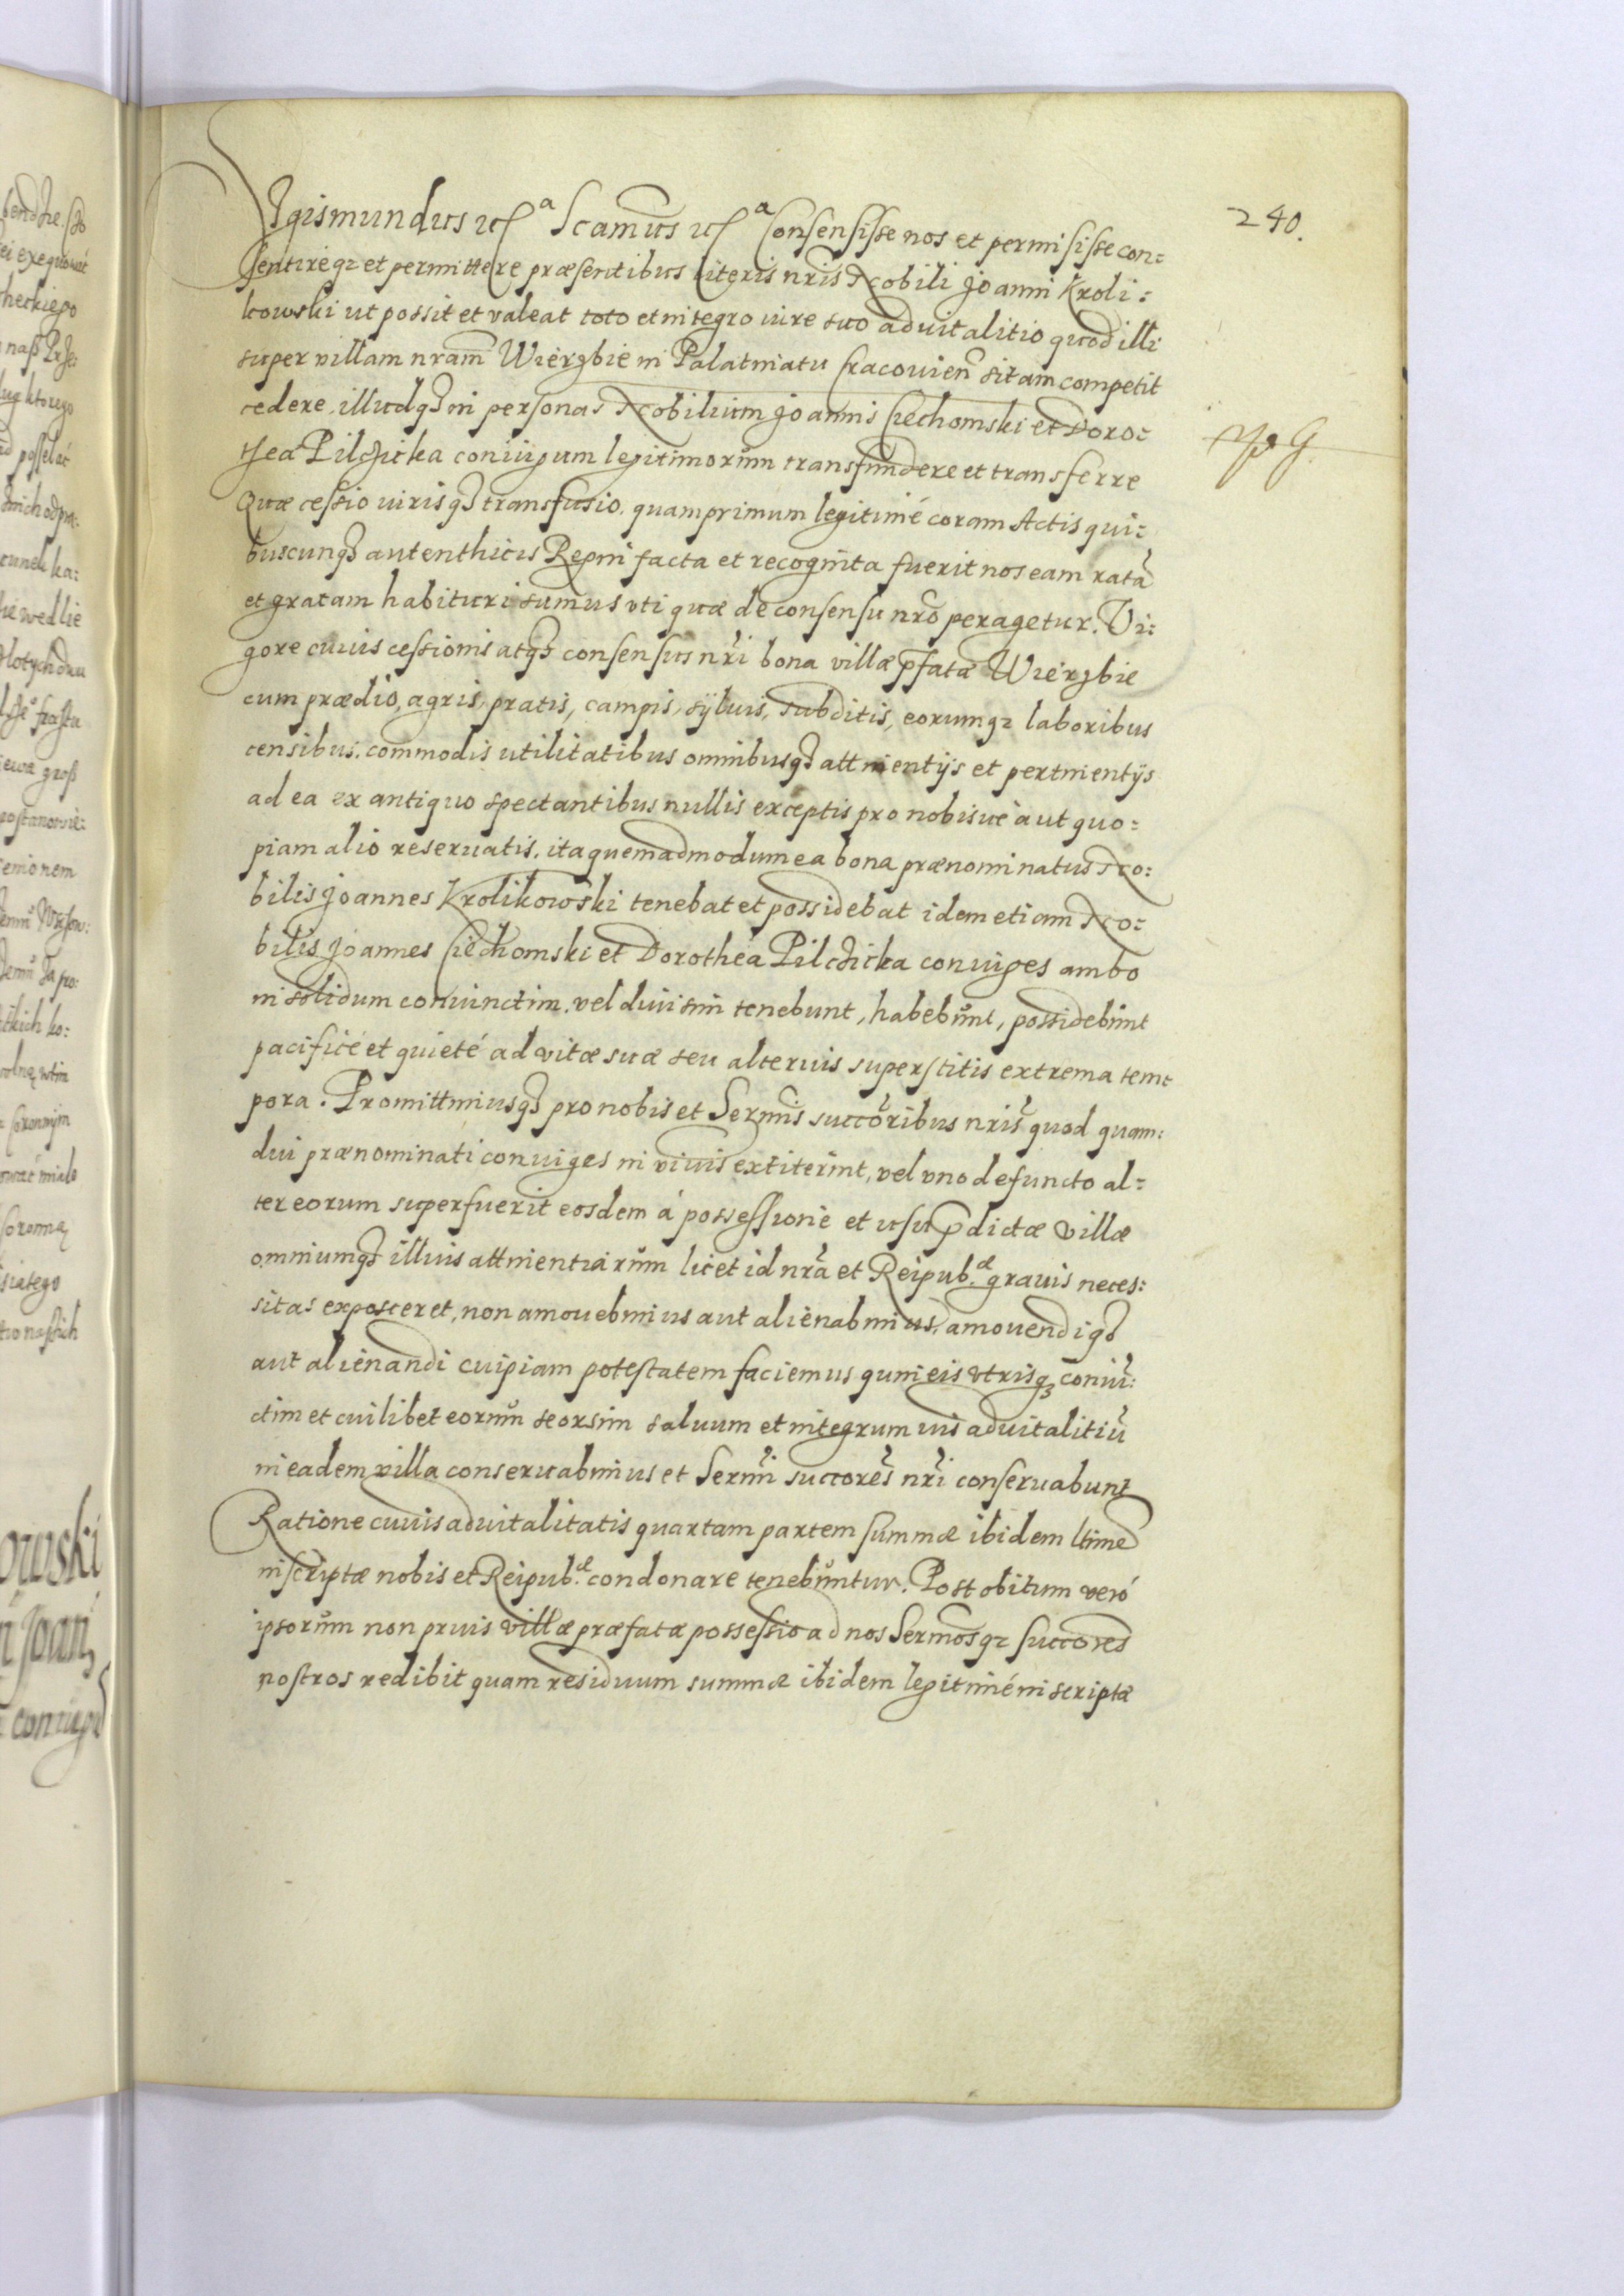 240.
Sigismundus etc.ª Scamus etc.ª Consensisse nos et permisisse con=
sentireqz et permittere præsentibus literis nris Nobili Joanni Kroli:
kowski ut possit et valeat toto et integro iure suo aduitalitio quod illi
super villam nram Wierzbie in Palatinatu Cracouien sitam competit
cedere, illudqz in personas Nobilium Joannis Ciechomski et Doro:
thea Pilchicka coniugum legitimorum transfundere et transferre
Quæ cessio iurisqz transfusio. quamprimum legitimé coram Actis qui:
buscunqz autenthicis Regni facta et recognita fuerit nos eam ratā
et gratam habituri sumus vti quæ de consensu nro peragetur. Vi:
gore cuius cessionis atqz consensus nri bona villæ pfatæ Wierzbie
cum prædio, agris, pratis, campis, syluis, subditis, eorumqz laboribus
censibus. commodis utilitatibus omnibusqz attinentijs et pertinentijs
ad ea ex antiquo spectantibus nullis exceptis pro nobisue aut quo:
piam alio reseruatis, ita quemadmodum ea bona prænominatus No:
bilis Joannes Krolikowski tenebat et possidebat idem etiam No:
bilis Joannes Ciechomski et Dorothea Pilchicka coniuges ambo
in solidum coniunctim. vel diuisim tenebunt, habebunt, possidebunt
pacificé et quieté ad vitæ suæ seu alterius superstitis extrema tem=
pora. Promittimusqz pro nobis et Sermis succoribus nris quod quam:
diu prænominati coniuges in viuis extiterint, vel vno defuncto al=
ter eorum superfuerit eosdem á possessione et usu pdictæ villæ
omniumqz illius attinentiarum licet id nra et Reipub.æ grauis neces:
sitas exposceret, non amouebimus aut alienabimus, amouendiqz
aut alienandi cuipiam potestatem faciemus quin eis vtrisqz coniū:
ctim et cuilibet eorum seorsim saluum et integrum ius aduitalitiū
in eadem villa conseruabimus et Sermi succores nri conseruabunt
Ratione cuius aduitalitatis quartam partem summæ ibidem ltime
inscriptæ nobis et Reipub.æ condonare tenebuntur. Post obitum veró
ipsorum non prius villæ præfatæ possessio ad nos Sermosqz succores
nostros redibit quam residuum summæ ibidem legitimé inscriptæ